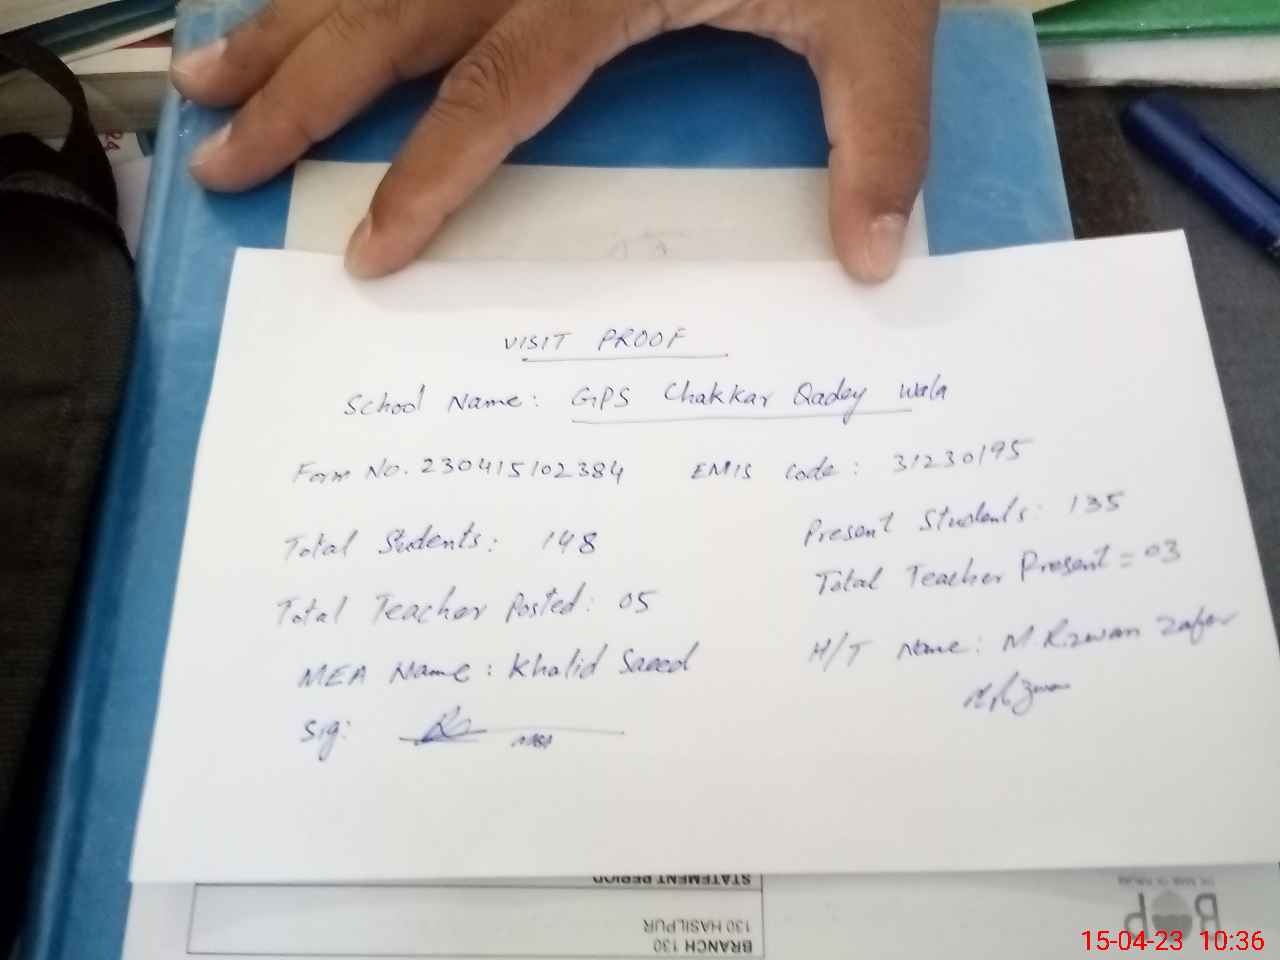 VISIT PROOF
School Name: GPS Chakkar Qadey Wala
Form No. 230415102384 EMIS Code: 31230195
Total Students: 148 Present Students: 135
Total Teacher Posted: 05 Total Teacher Present = 03
MEA Name: Khalid Saeed H/T Name: M Rizwan Zafar
Sig:
STATEMENT PERIOD
130 HASILPUR
BRANCH 130
BOP
15-04-23 10:36